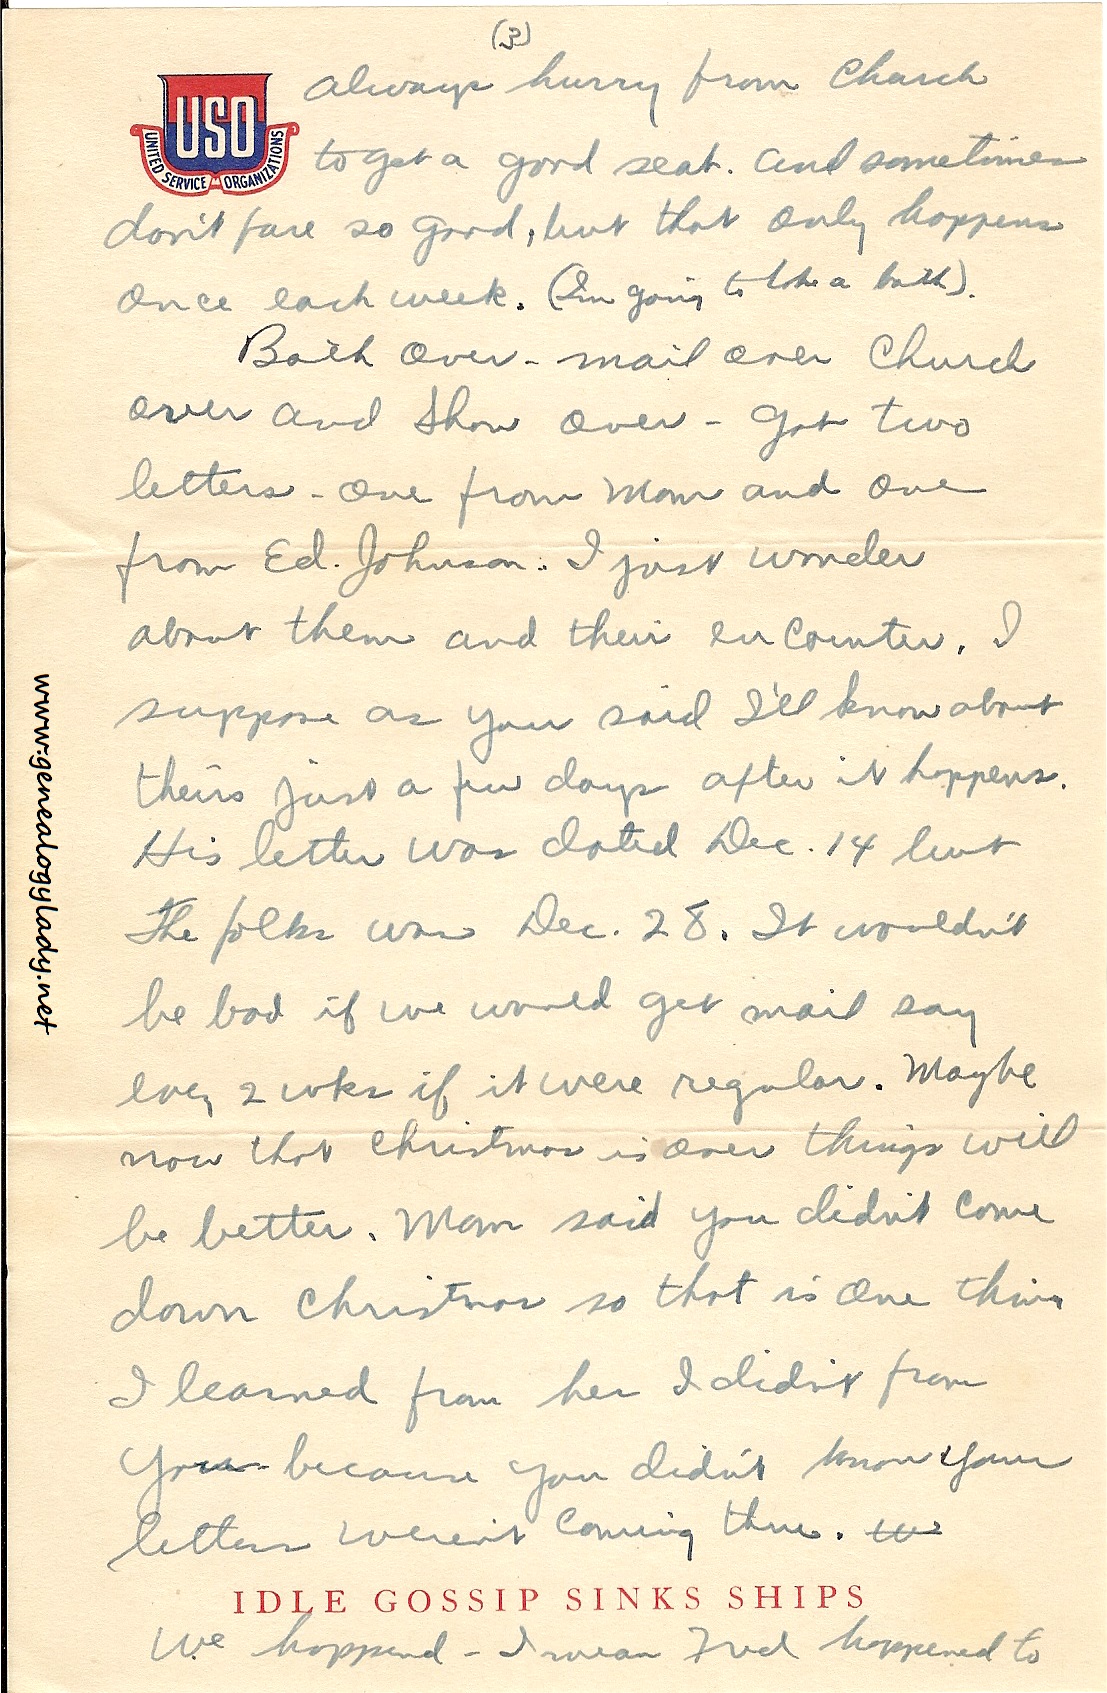 (3)
always hurry from Church
USO
UNITED SERVICE ORGANIZATIONS
to get a good seat. and sometimes
don't fare so good, but that only happens
once each week. (I'm going to take a bath).
Bath over - mail over Church
over and Show over - Got two
letters - one from Mom and one
from Ed. Johnson. I just wonder
about them and their encounter. I
suppose as you said I'll know about
theirs just a few days after it happens.
His letter was dated Dec. 14 but
The folks was Dec. 28. It wouldn't
be bad if we would get mail say
every 2 wks if it were regular. Maybe
now that Christmas is over things will
be better. Mom said you didn't come
down Christmas so that is one thing
I learned from her I didn't from
you because you didn't know your
letters weren't coming thru. we
IDLE GOSSIP SINKS SHIPS
We happend - I mean Fred happened to
www.genealogylady.net